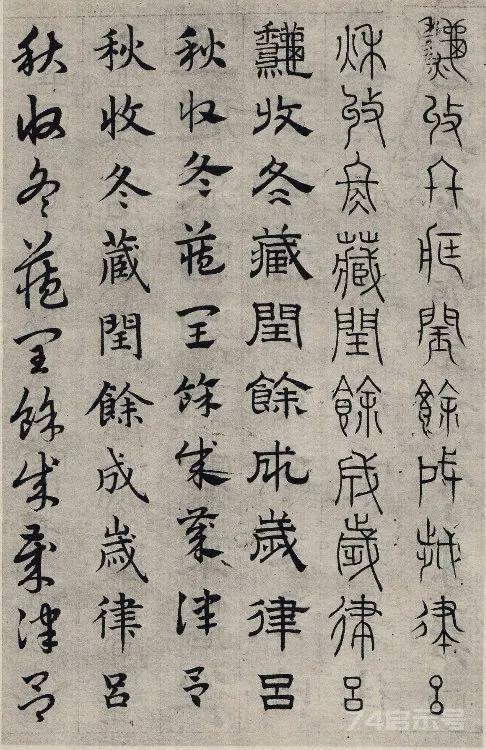 秋收冬藏閏餘成歲律呂
秋收冬藏閏餘成歲律呂
秋收冬藏閏餘成歲律呂
秋收冬藏閏餘成歲律呂
秋收冬藏閏餘成歲律呂
秋收冬藏閏餘成歲律呂
74启示号